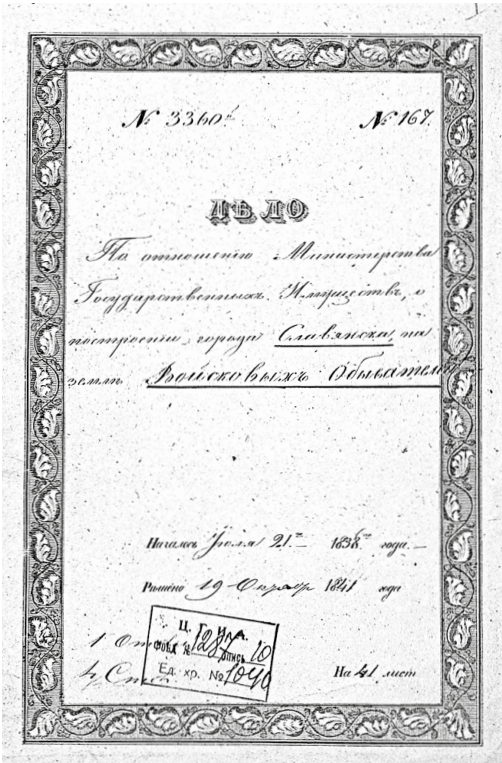 № 3360 № 167
ДѢЛО
По отношенію Министерства
Государственныхъ Имуществъ, о
построеніи города Славянска, на
землѣ Войсковыхъ Обывателей
Началось Іюля 21 1838 года
Рѣшено 19 1841 года
Ц. Г. И. А.
1
ФОНД № 1287 ОПИСЬ 10
Ед. хр. № 1040
На 41 лист